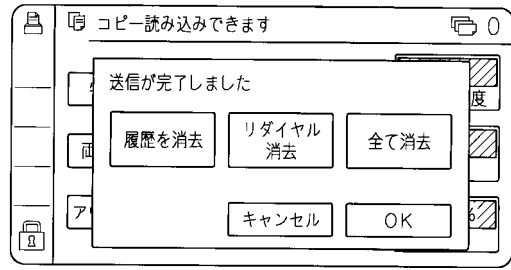 コピー読み込みできます 0
送信が完了しました
度
履歴を消去 リダイヤル消去 全て消去
両
ア
%
キャンセル OK
1